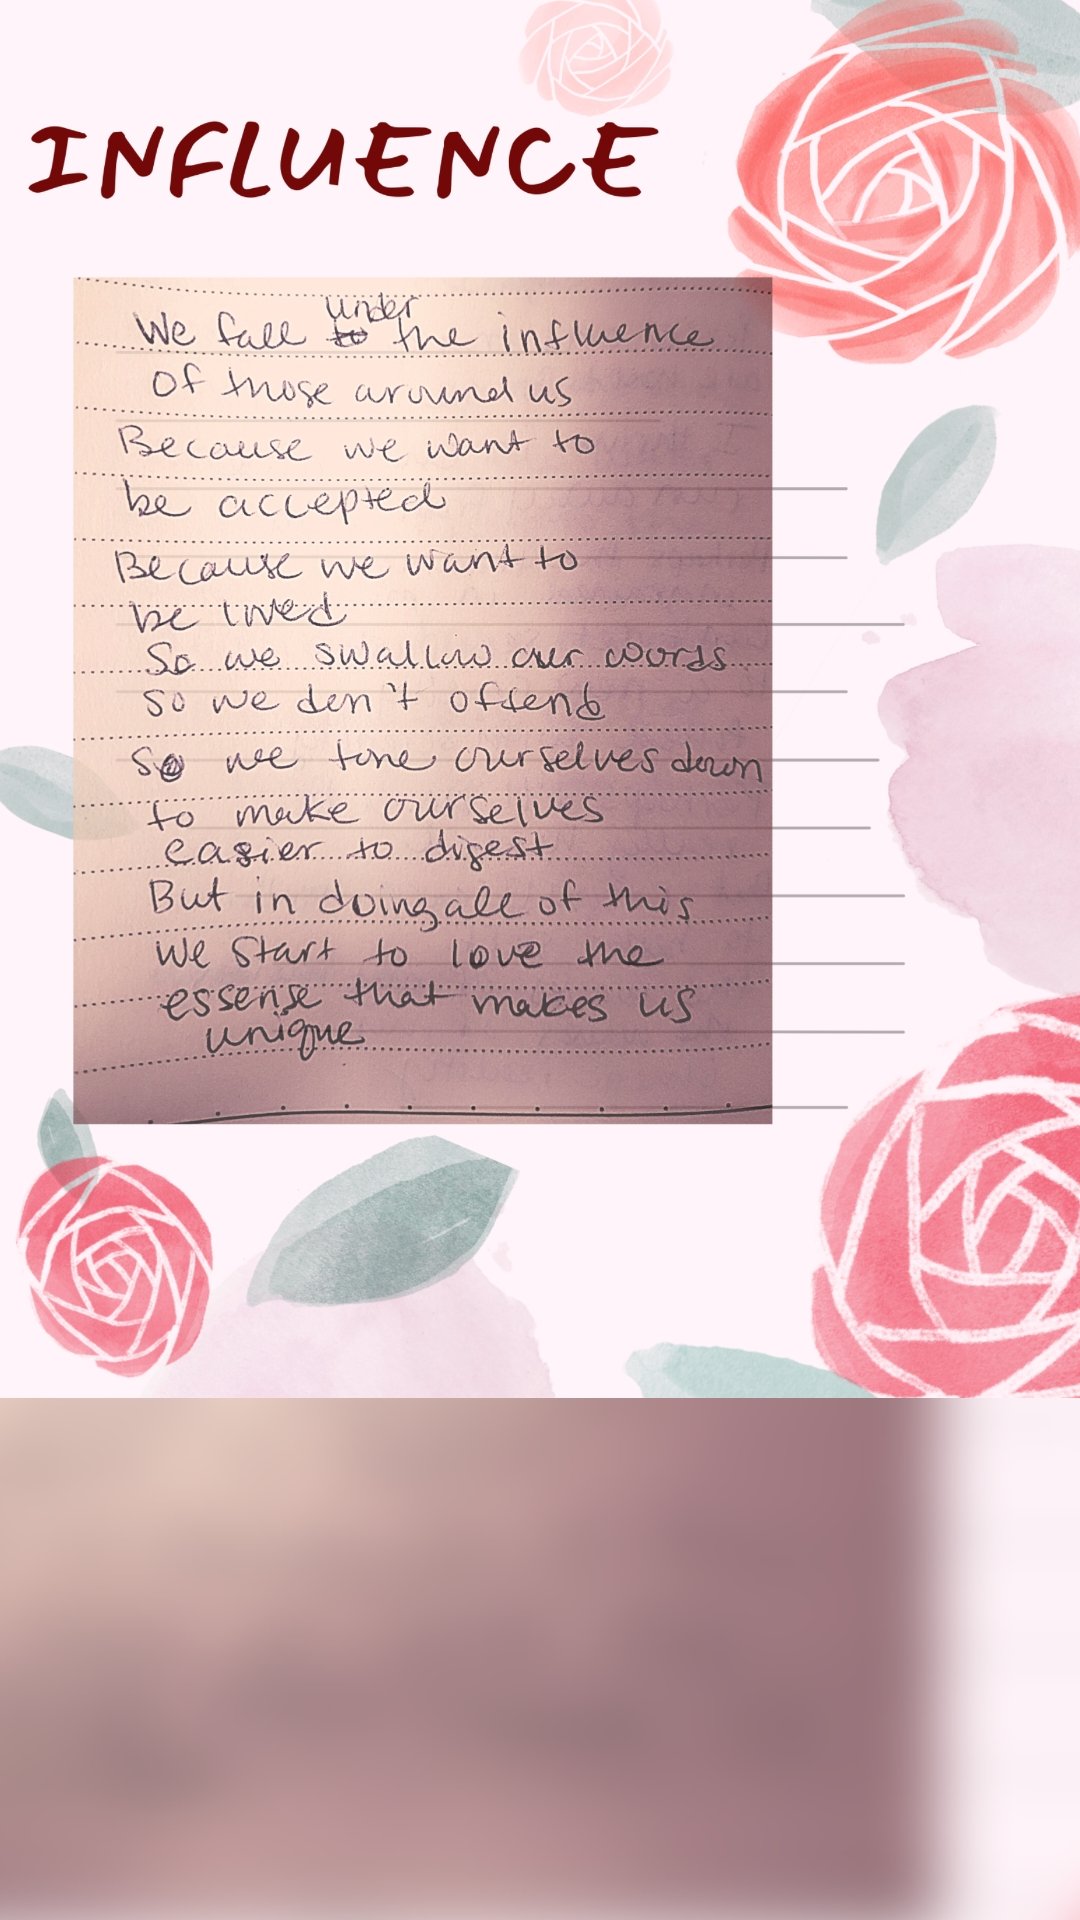 INFLUENCE
We fall under the influence
Of those around us
Because we want to
be accepted
Because we want to
be loved
So we swallow our words
So we don't offend
So we tone ourselves down
to make ourselves
easier to digest
But in doing all of this
We start to love the
essense that makes us
unique